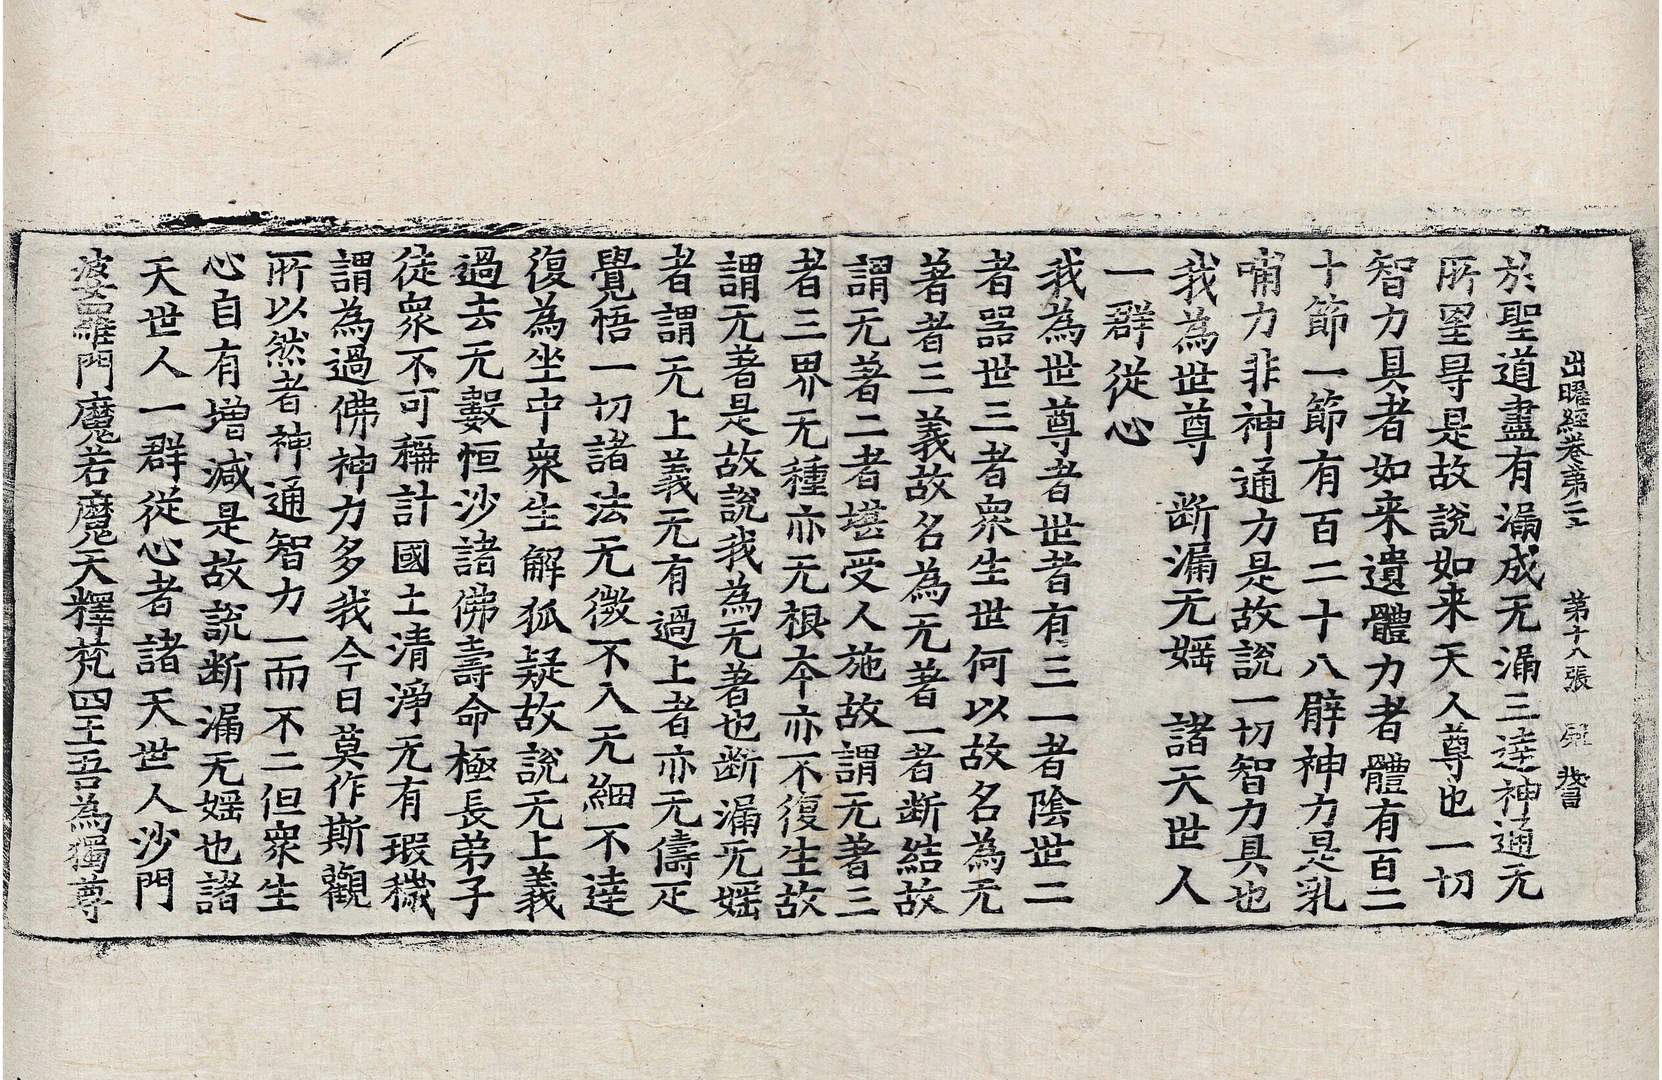 出曜經卷第二十 第十八張
於聖道盡有漏成无漏三達神通无
所罣㝵是故說如来天人尊也一切
智力具者如来遺體力者體有百二
十節一節有百二十八臂神力是乳
哺力非神通力是故說一切智力具也
我為世尊 断漏无婬 諸天世人
一群従心
我為世尊者世者有三一者陰世二
者器世三者衆生世何以故名為无
著者三義故名為无著一者断結故
謂无著二者堪受人施故謂无著三
者三界无種亦无根夲亦不復生故
謂无著是故說我為无著也断漏无婬
者謂无上義无有過上者亦无儔疋
覺悟一切諸法无微不入无細不達
復為坐中衆生解狐疑故說无上義
過去无數恒沙諸佛壽命極長弟子
徒衆不可稱計國土清淨无有瑕穢
謂為過佛神力多我今日莫作斯觀
所以然者神通智力一而不二但衆生
心自有増減是故說断漏无婬也諸
天世人一群従心者諸天世人沙門
波㝹羅門魔若魔天釋梵四王吾為獨尊